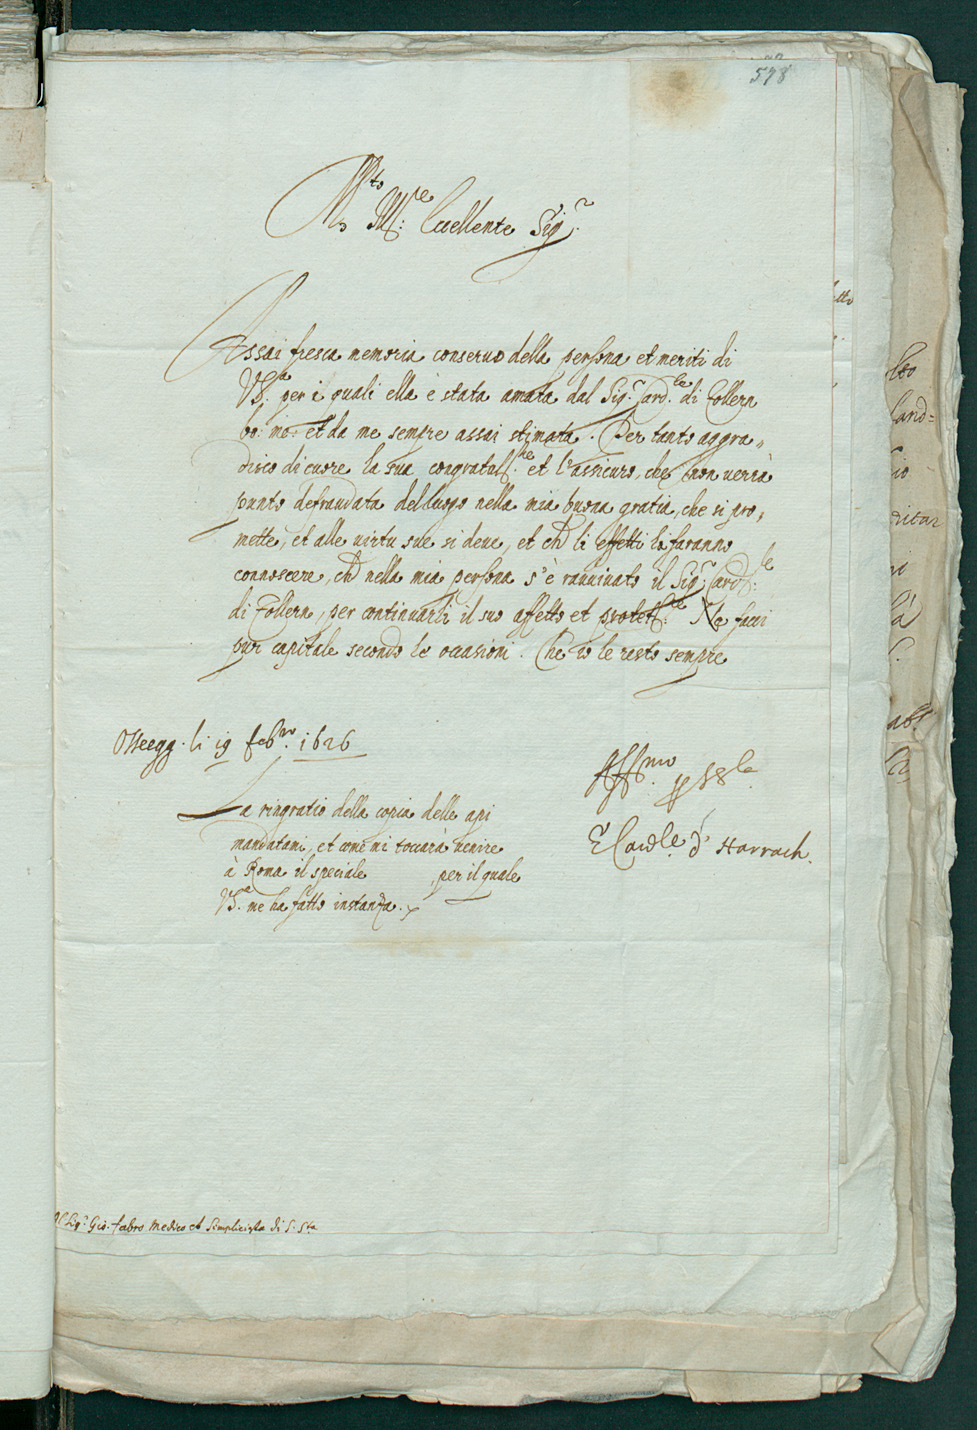 578
M.to Ill.re Eccellente Sig.r
Assai fresca memoria conservo della persona et meriti di
V.S.a per i quali ella è stata amata dal Sig.r Card.le di Zollern
bo: mo: et da me sempre assai stimata. Per tanto aggra„
disco di cuore la sua congratul.ne et l'assicuro, che non verrà
punto defraudata del luogo nella mia buona gratia, che si pro„
mette, et alle virtu sue si deve, et che li effetti lo faranno
connoscere, che nella mia persona s'è ravvivato il Sig.r Card.le
di Zollern, per continuarli il suo affetto et protett.ne Ne facci
pur capitale secondo le occasioni. Che io le resto sempre
Osseegg. li 19 feb.ro 1626
Aff.mo
E Card.le d' Harrach.
La ringratio della copia delle api
mandatami, et come mi toccarà venire
à Roma il speciale , per il quale
V.S. me ha fatto instanza.
Al Sig.r Gio. fabro Medico et Simplicista di S. S.ta